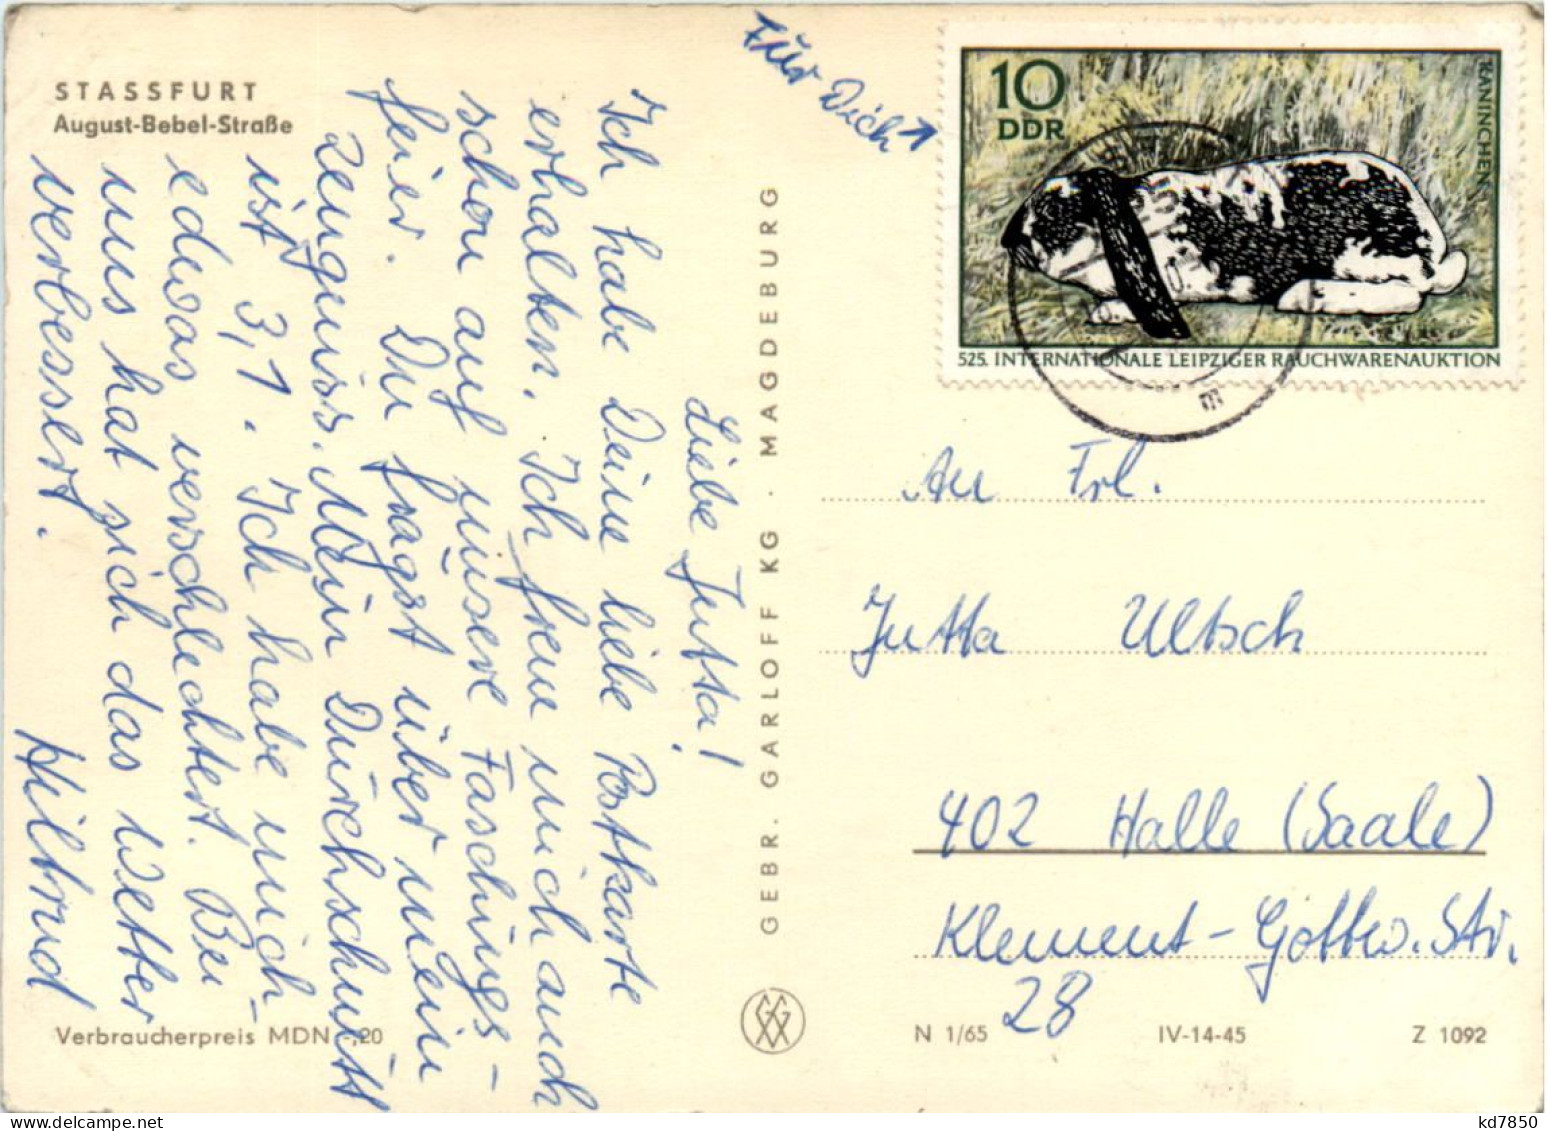 STASSFURT
August-Bebel-Straße
Liebe Jutta!
Ich habe Deine liebe Postkarte
erhalten. Ich freu mich auch
schon auf unsere Faschings-
feier. Du fragst über mein
Zeugniss. Mein Durchschnitt
ist 3,1. Ich habe mich
edwas verschlechtert. Bei
uns hat sich das Wetter
verbessert.
Hiltrud
Verbraucherpreis MDN -,20
GEBR. GARLOFF KG · MAGDEBURG
Für Dich
10
DDR
KANINCHEN
525. INTERNATIONALE LEIPZIGER RAUCHWARENAUKTION
m
An Frl.
Jutta Ultsch
402 Halle (Saale)
Klement-Gottw. Str.
28
N 1/65 IV-14-45 Z 1092
kd7850